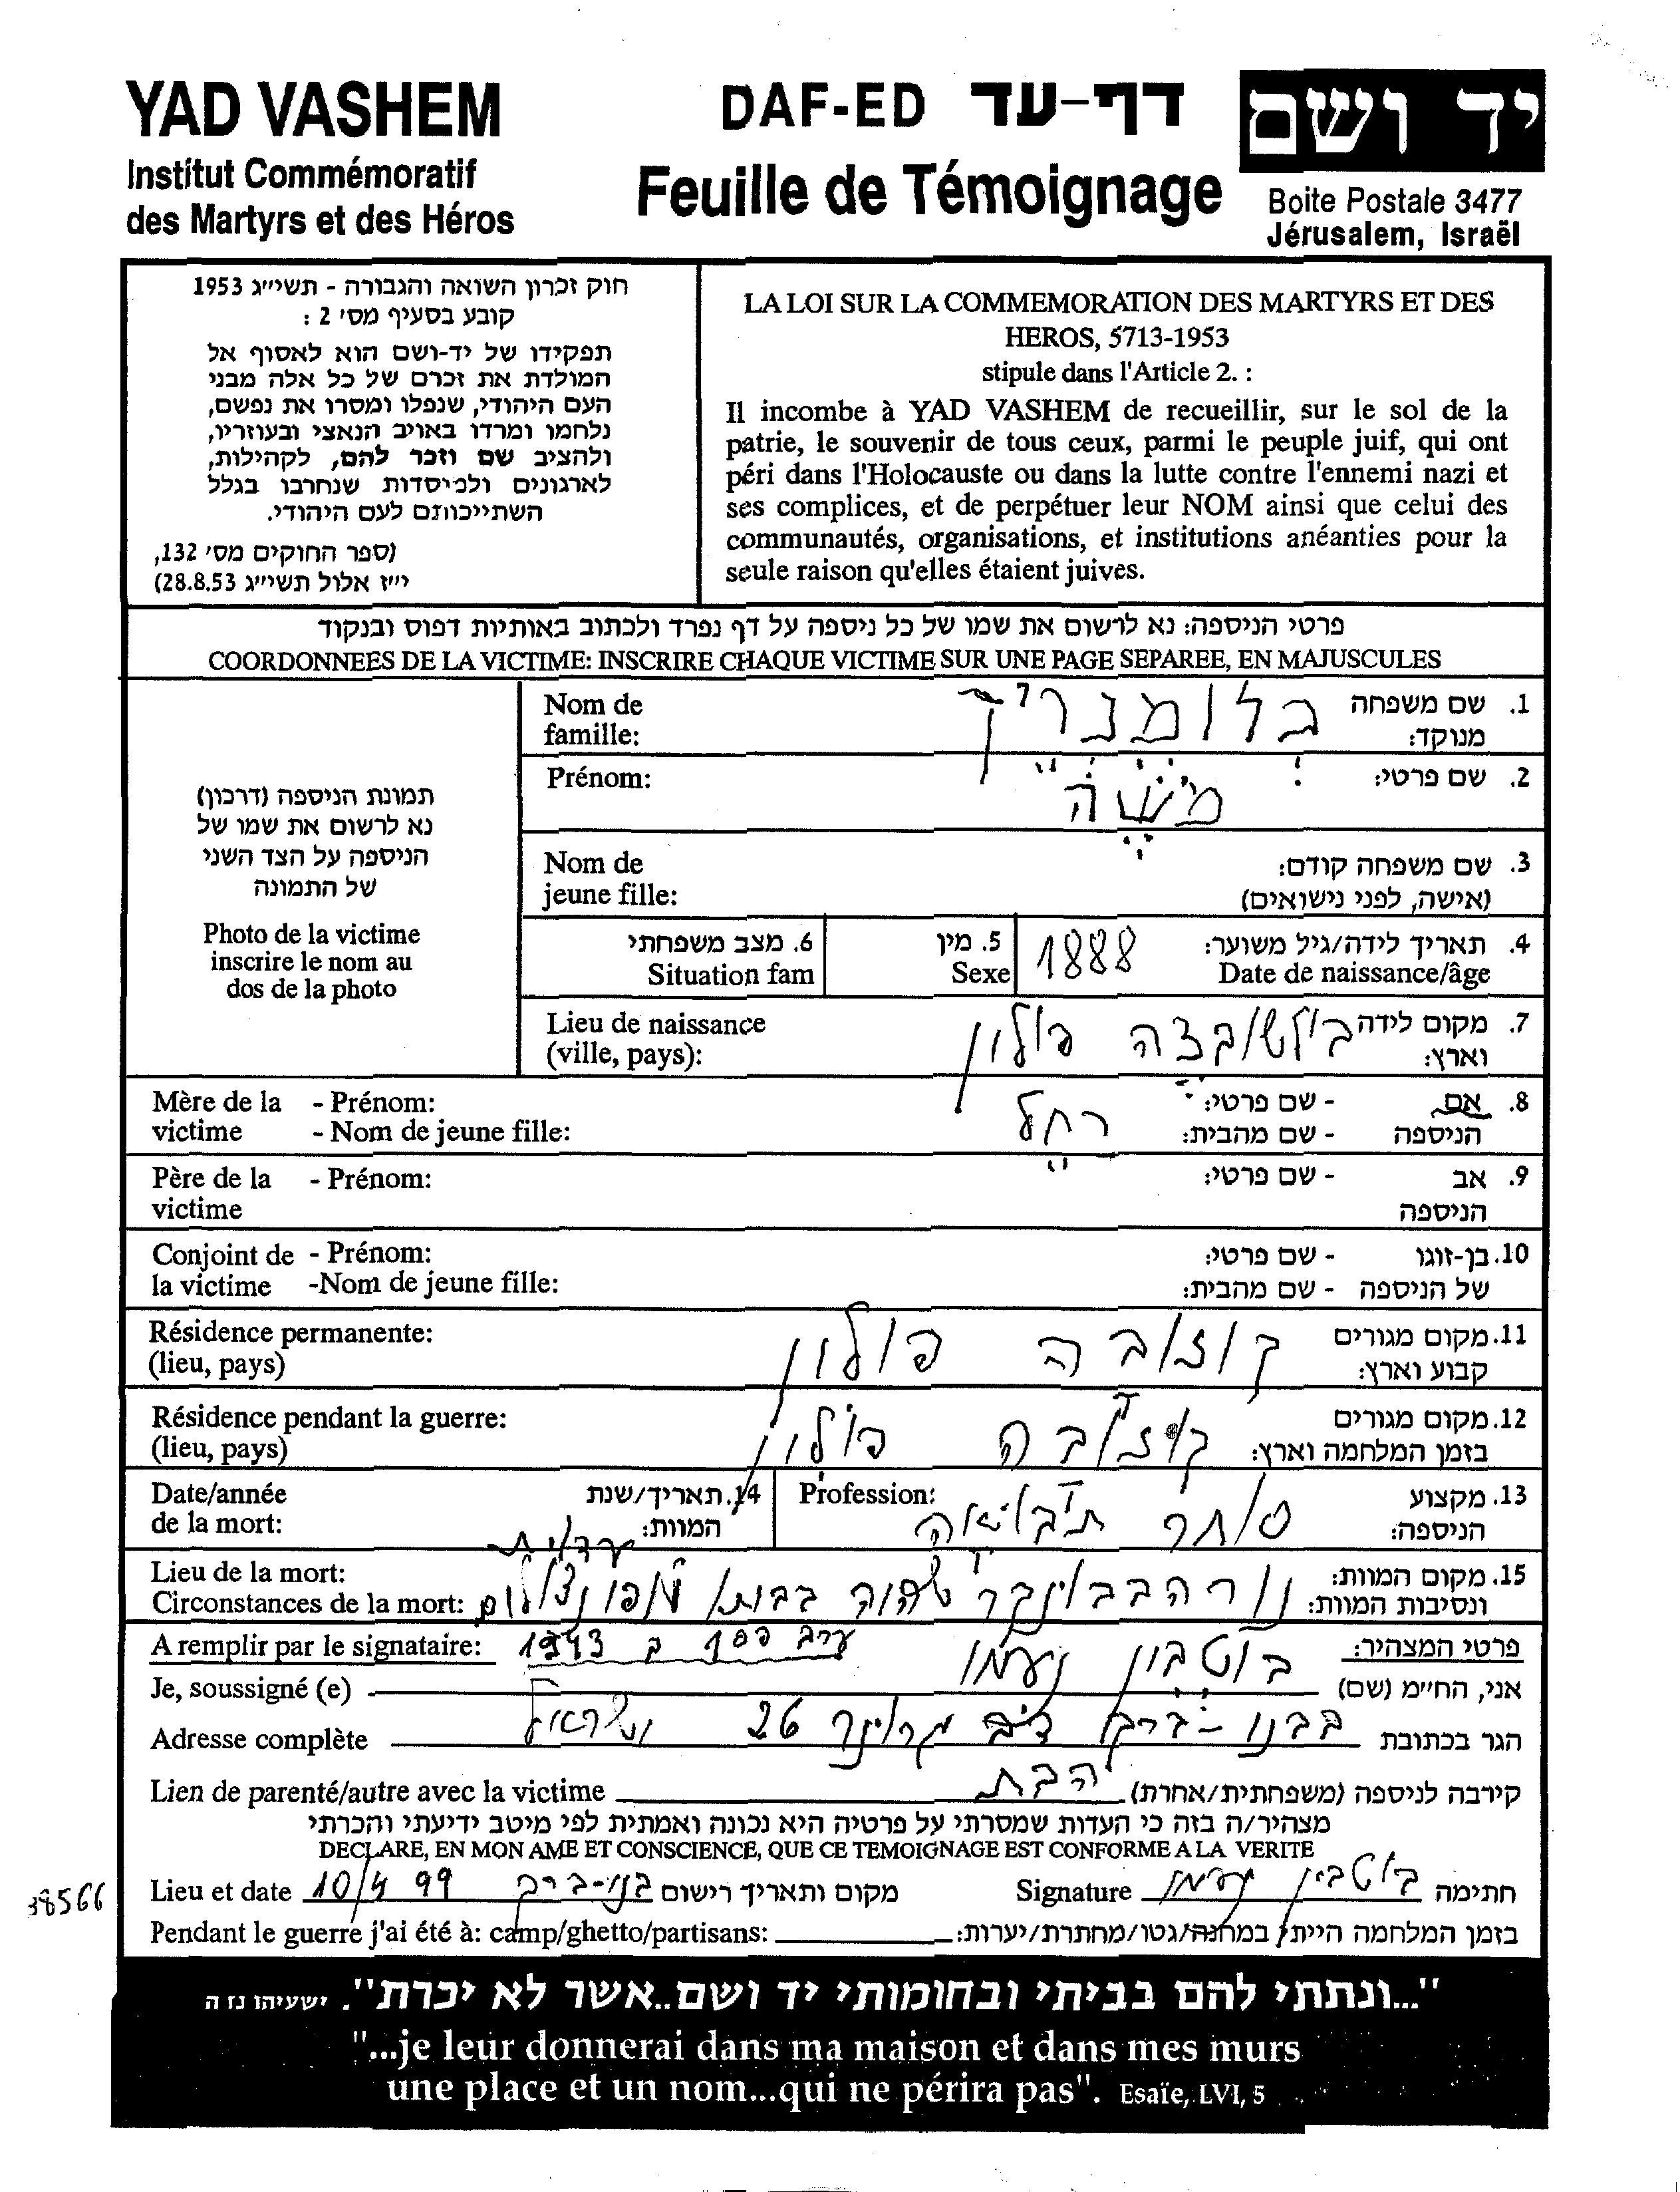 YAD VASHEM
Institut Commémoratif
des Martyrs et des Héros
DAF-ED דף-עד
Feuille de Témoignage
יד ושם
Boite Postale 3477
Jérusalem, Israël
חוק זכרון השואה והגבורה - תשי״ג 1953
קובע בסעיף מס׳ 2 :
תפקידו של יד-ושם הוא לאסוף אל
המולדת את זכרם של כל אלה מבני
העם היהודי, שנפלו ומסרו את נפשם,
נלחמו ומרדו באויב הנאצי ובעוזריו,
ולהציב שם וזכר להם, לקהילות,
לארגונים ולמיסדות שנחרבו בגלל
השתייכותם לעם היהודי.
(ספר החוקים מס׳ 132,
י״ז אלול תשי״ג 28.8.53)
LA LOI SUR LA COMMEMORATION DES MARTYRS ET DES
HEROS, 5713-1953
stipule dans l'Article 2. :
Il incombe à YAD VASHEM de recueillir, sur le sol de la
patrie, le souvenir de tous ceux, parmi le peuple juif, qui ont
péri dans l'Holocauste ou dans la lutte contre l'ennemi nazi et
ses complices, et de perpétuer leur NOM ainsi que celui des
communautés, organisations, et institutions anéanties pour la
seule raison qu'elles étaient juives.
פרטי הניספה: נא לרשום את שמו של כל ניספה על דף נפרד ולכתוב באותיות דפוס ובנקוד
COORDONNEES DE LA VICTIME: INSCRIRE CHAQUE VICTIME SUR UNE PAGE SEPAREE, EN MAJUSCULES
תמונת הניספה (דרכון)
נא לרשום את שמו של
הניספה על הצד השני
של התמונה
Photo de la victime
inscrire le nom au
dos de la photo
1. שם משפחה בלומנרייך Nom de
מנוקד: famille:
2. שם פרטי: משה Prénom:
3. שם משפחה קודם: Nom de
(אישה, לפני נישואים) jeune fille:
4. תאריך לידה/גיל משוער: 1888 5. מין 6. מצב משפחתי
Date de naissance/âge Sexe Situation fam
7. מקום לידה פולין Lieu de naissance
וארץ: (ville, pays):
8. אם - שם פרטי: רחל Mère de la - Prénom:
הניספה - שם מהבית: victime - Nom de jeune fille:
9. אב - שם פרטי: Père de la - Prénom:
הניספה victime
10. בן-זוגו - שם פרטי: Conjoint de - Prénom:
של הניספה - שם מהבית: la victime -Nom de jeune fille:
11. מקום מגורים קוזובה פולין Résidence permanente:
קבוע וארץ: (lieu, pays)
12. מקום מגורים קוזובה פולין Résidence pendant la guerre:
בזמן המלחמה וארץ: (lieu, pays)
13. מקצוע סוחר תבואה Profession:
הניספה:
14. תאריך/שנת Date/année
המוות: de la mort:
15. מקום המוות: Lieu de la mort:
ונסיבות המוות: Circonstances de la mort:
ערב פסח ב 1943
פרטי המצהיר: A remplir par le signataire:
אני, החי״מ (שם) בוטבין נעמי Je, soussigné (e)
הגר בכתובת בבני-ברק 26 ישראל Adresse complète
קירבה לניספה (משפחתית/אחרת) הבת Lien de parenté/autre avec la victime
מצהיר/ה בזה כי העדות שמסרתי על פרטיה היא נכונה ואמתית לפי מיטב ידיעתי והכרתי
DECLARE, EN MON AME ET CONSCIENCE, QUE CE TEMOIGNAGE EST CONFORME A LA VERITE
Lieu et date 10/4 99 בני-ברק מקום ותאריך רישום Signature בוטבין נעמי חתימה
38566
Pendant le guerre j'ai été à: camp/ghetto/partisans: בזמן המלחמה הייתי במחנה/גטו/מחתרת/יערות:
"...ונתתי להם בביתי ובחומותי יד ושם..אשר לא יכרת". ישעיהו נז ה
"...je leur donnerai dans ma maison et dans mes murs
une place et un nom...qui ne périra pas". Esaïe, LVI, 5